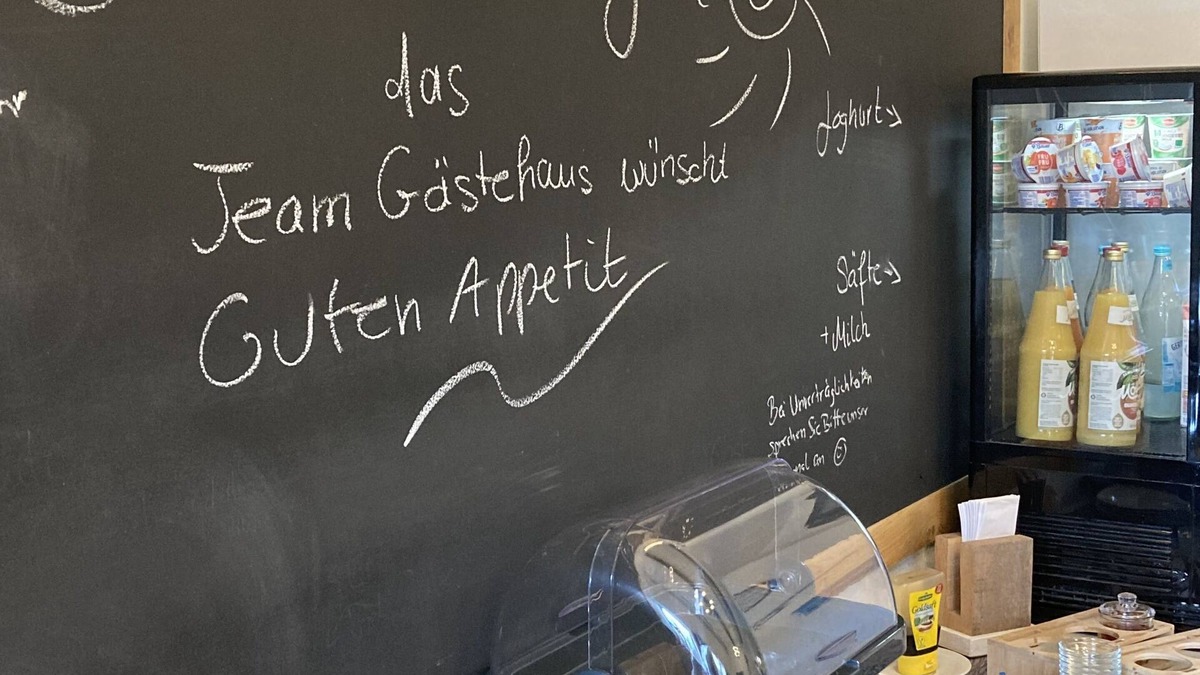 das
Team Gästehaus wünscht
Guten Appetit
Joghurt →
Säfte →
+ Milch
Bei Unverträglichkeiten
sprechen Sie Bitte unser
an ☺
FRU
FRU
Goldsaft